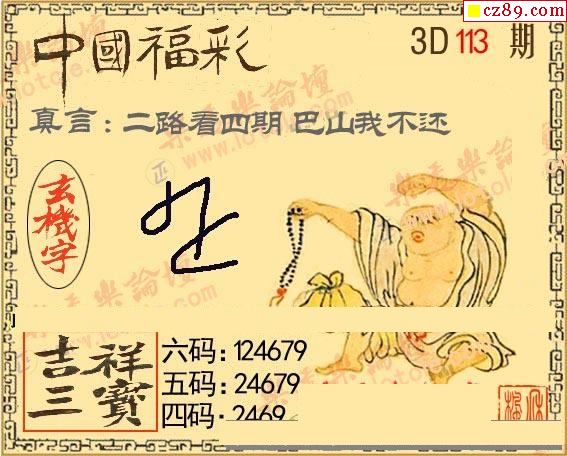 cz89.com
中國福彩
3D 113 期
真言：二路看四期 巴山我不还
玄機字
吉祥
三寶
六码：124679
五码：24679
四码：2469